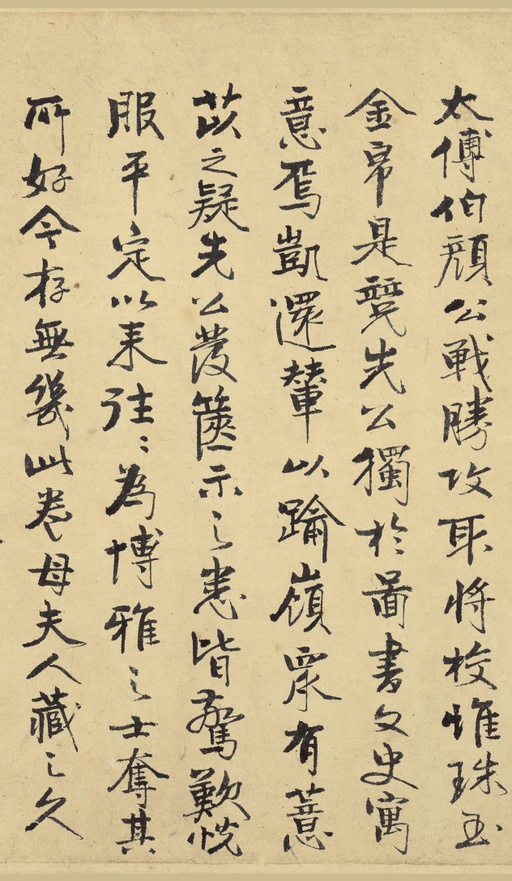 太傅伯顔公戰勝攻取将校惟珠玉
金帛是競先公獨於啚書文史寓
意焉凱還輦以踰嶺衆有薏
苡之疑先公發篋示之悉皆驚歎悦
服平定以来往〻為博雅之士奪其
所好今存無幾此卷母夫人藏之久